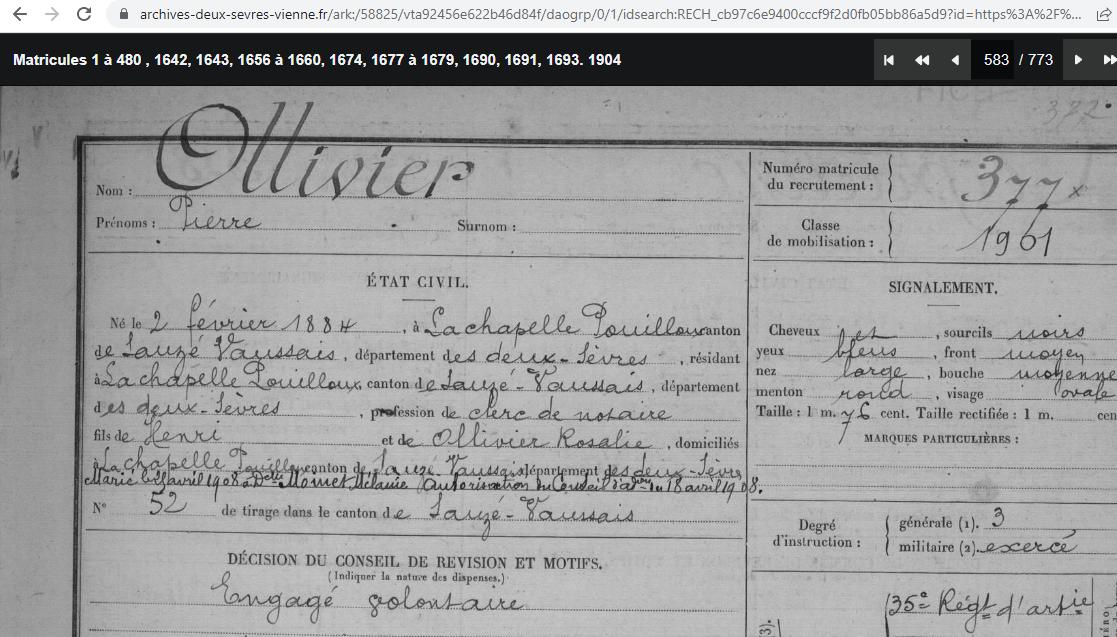 archives-deux-sevres-vienne.fr/ark:/58825/vta92456e622b46d84f/daogrp/0/1/idsearch:RECH_cb97c6e9400cccf9f2d0fb05bb86a5d9?id=https%3A%2F%...
Matricules 1 à 480 , 1642, 1643, 1656 à 1660, 1674, 1677 à 1679, 1690, 1691, 1693. 1904
583 / 773
382
Nom : Ollivier
Prénoms : Pierre Surnom :
Numéro matricule du recrutement : 377
Classe de mobilisation : 1901
ÉTAT CIVIL.
Né le 2 février 1884, à La chapelle Pouilloux canton
de Sauzé Vaussais, département des deux-Sèvres, résidant
à La chapelle Pouilloux canton de Sauzé-Vaussais, département
des deux-Sèvres, profession de clerc de notaire
fils de Henri et de Ollivier Rosalie, domiciliés
à La chapelle Pouilloux canton de Sauzé-Vaussais département des deux-Sèvres
Marié le avril 1908 à Delle Mélanie autorisation du Conseil d'adon du 18 avril 1908.
N° 52 de tirage dans le canton de Sauzé-Vaussais
SIGNALEMENT.
Cheveux et, sourcils noirs
yeux bleus, front moyen
nez large, bouche moyenne
menton rond, visage ovale
Taille : 1 m. 76 cent. Taille rectifiée : 1 m. cen
MARQUES PARTICULIÈRES :
Degré d'instruction : générale (1). 3
militaire (2). exercé
DÉCISION DU CONSEIL DE REVISION ET MOTIFS.
(Indiquer la nature des dispenses.)
Engagé volontaire
35e Régt d'artie